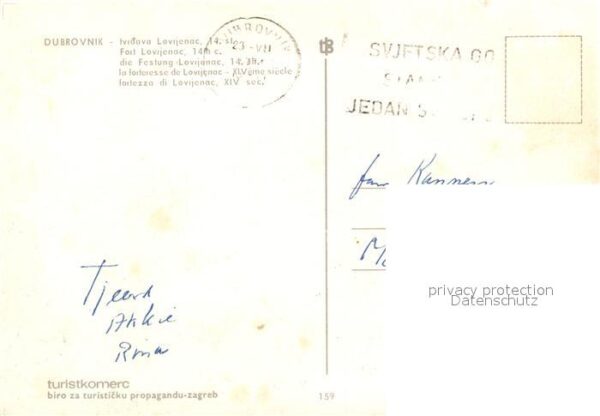 DUBROVNIK - tvrđava Lovijenac, 14. st.
Fort Lovijenac, 14th c.
die Festung Lovijenac, 14. Jh.
la forteresse de Lovijenac - XIVème siècle
fortezza di Lovijenac, XIV sec.
DUBROVNIK
23-VII
tB
SVJETSKA GO
JEDAN
fam
Tjeerd
Ankie
Rina
privacy protection
Datenschutz
turistkomerc
biro za turističku propagandu-zagreb
159